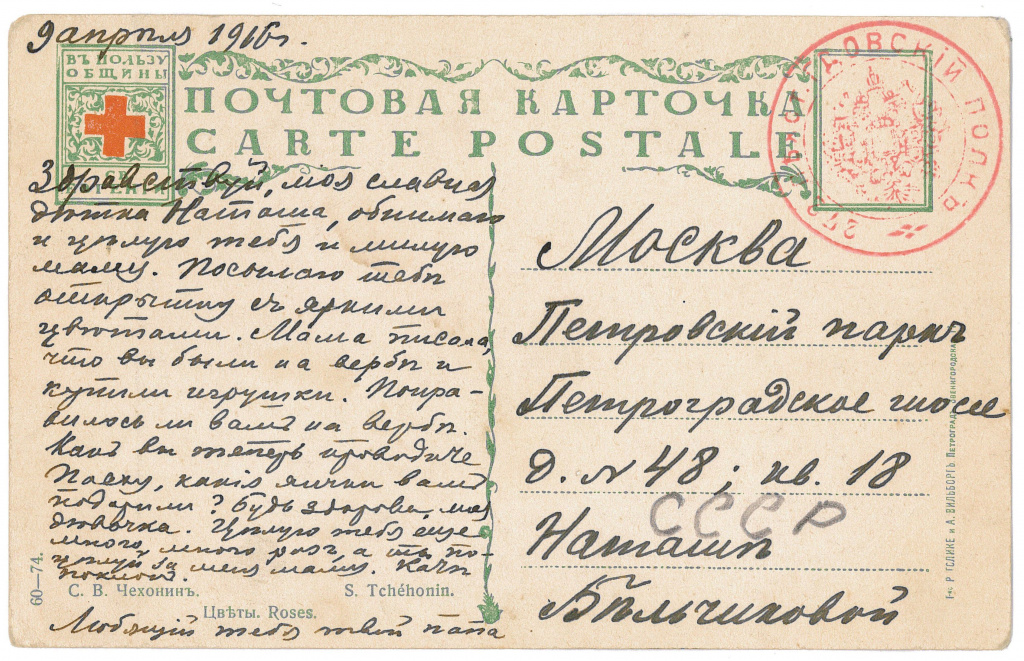 9 апрѣля 1916г.
ВЪ ПОЛЬЗУ
ОБЩИНЫ
ПОЧТОВАЯ КАРТОЧКА
CARTE POSTALE
ПОЛКЪ
Здравствуй, моя славная
дѣтка Наташа, обнимаю
и цѣлую тебя и милую
маму. Посылаю тебѣ
открытку съ яркими
цвѣтами. Мама писала,
что вы были на вербѣ и
купили игрушки. Понра-
вилось ли вамъ на вербѣ.
Какъ вы теперь проводите
Пасху, какія яички вамъ
подарили? Будь здорова, моя
дѣвочка. Цѣлую тебя еще
много, много разъ, а ты по-
цѣлуй за меня маму.
Любящій тебя твой папа
Москва
Петровскій паркъ
Петроградское шоссе
д. № 48; кв. 18
СССР
Наташѣ
Бѣльчиковой
60—74.
С. В. Чехонинъ. S. Tchéhonin.
Цвѣты. Roses.
Р. ГОЛИКЕ и А. ВИЛЬБОРГЪ. ПЕТРОГРАДЪ